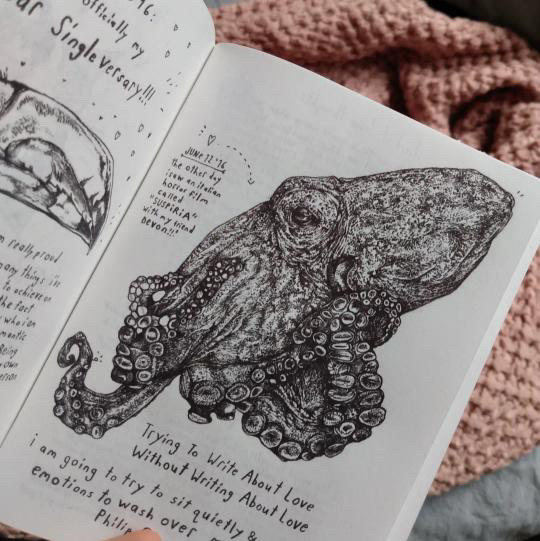 16.
officially my
ur Singleversary!!!
m really proud
many things i's
to achieve on
the fact
who i am
mantic
Being
own
erson
JUNE 22 '16
the other day
i saw an italian
horror film
called
"SUSPIRIA"
with my friend
Devon!!
Trying To Write About Love
Without Writing About Love
i am going to try to sit quietly &
emotions to wash over
Philip